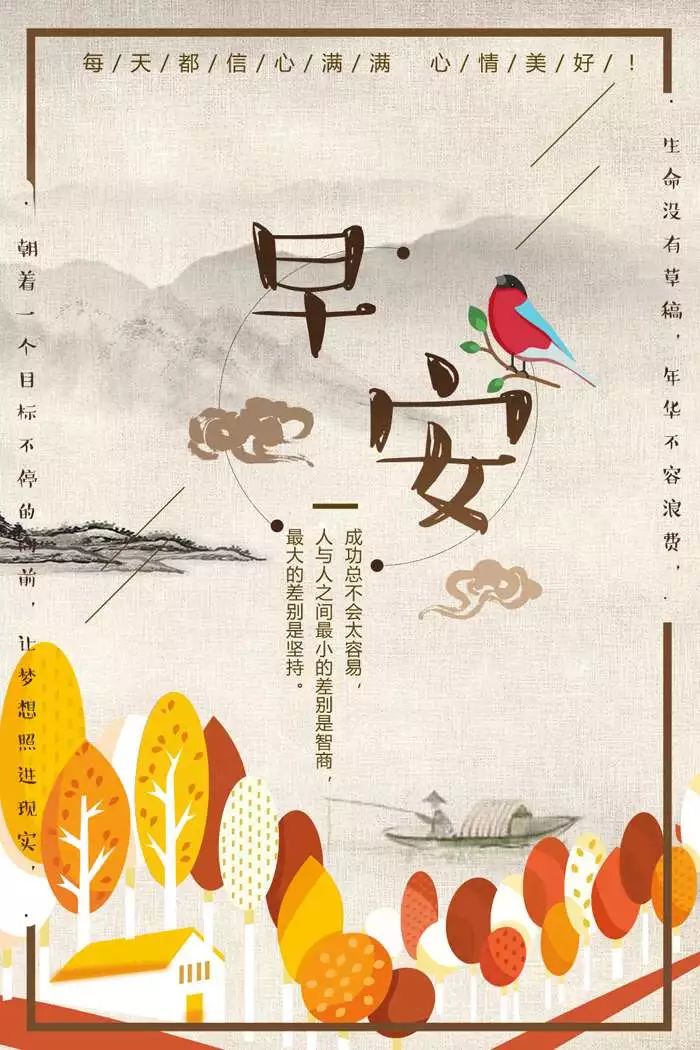 每/天/都/信/心/满/满 心/情/美/好/!
·生命没有草稿，年华不容浪费，·
早安
成功总不会太容易，
人与人之间最小的差别是智商，
最大的差别是坚持。
·朝着一个目标不停的向前，让梦想照进现实，·